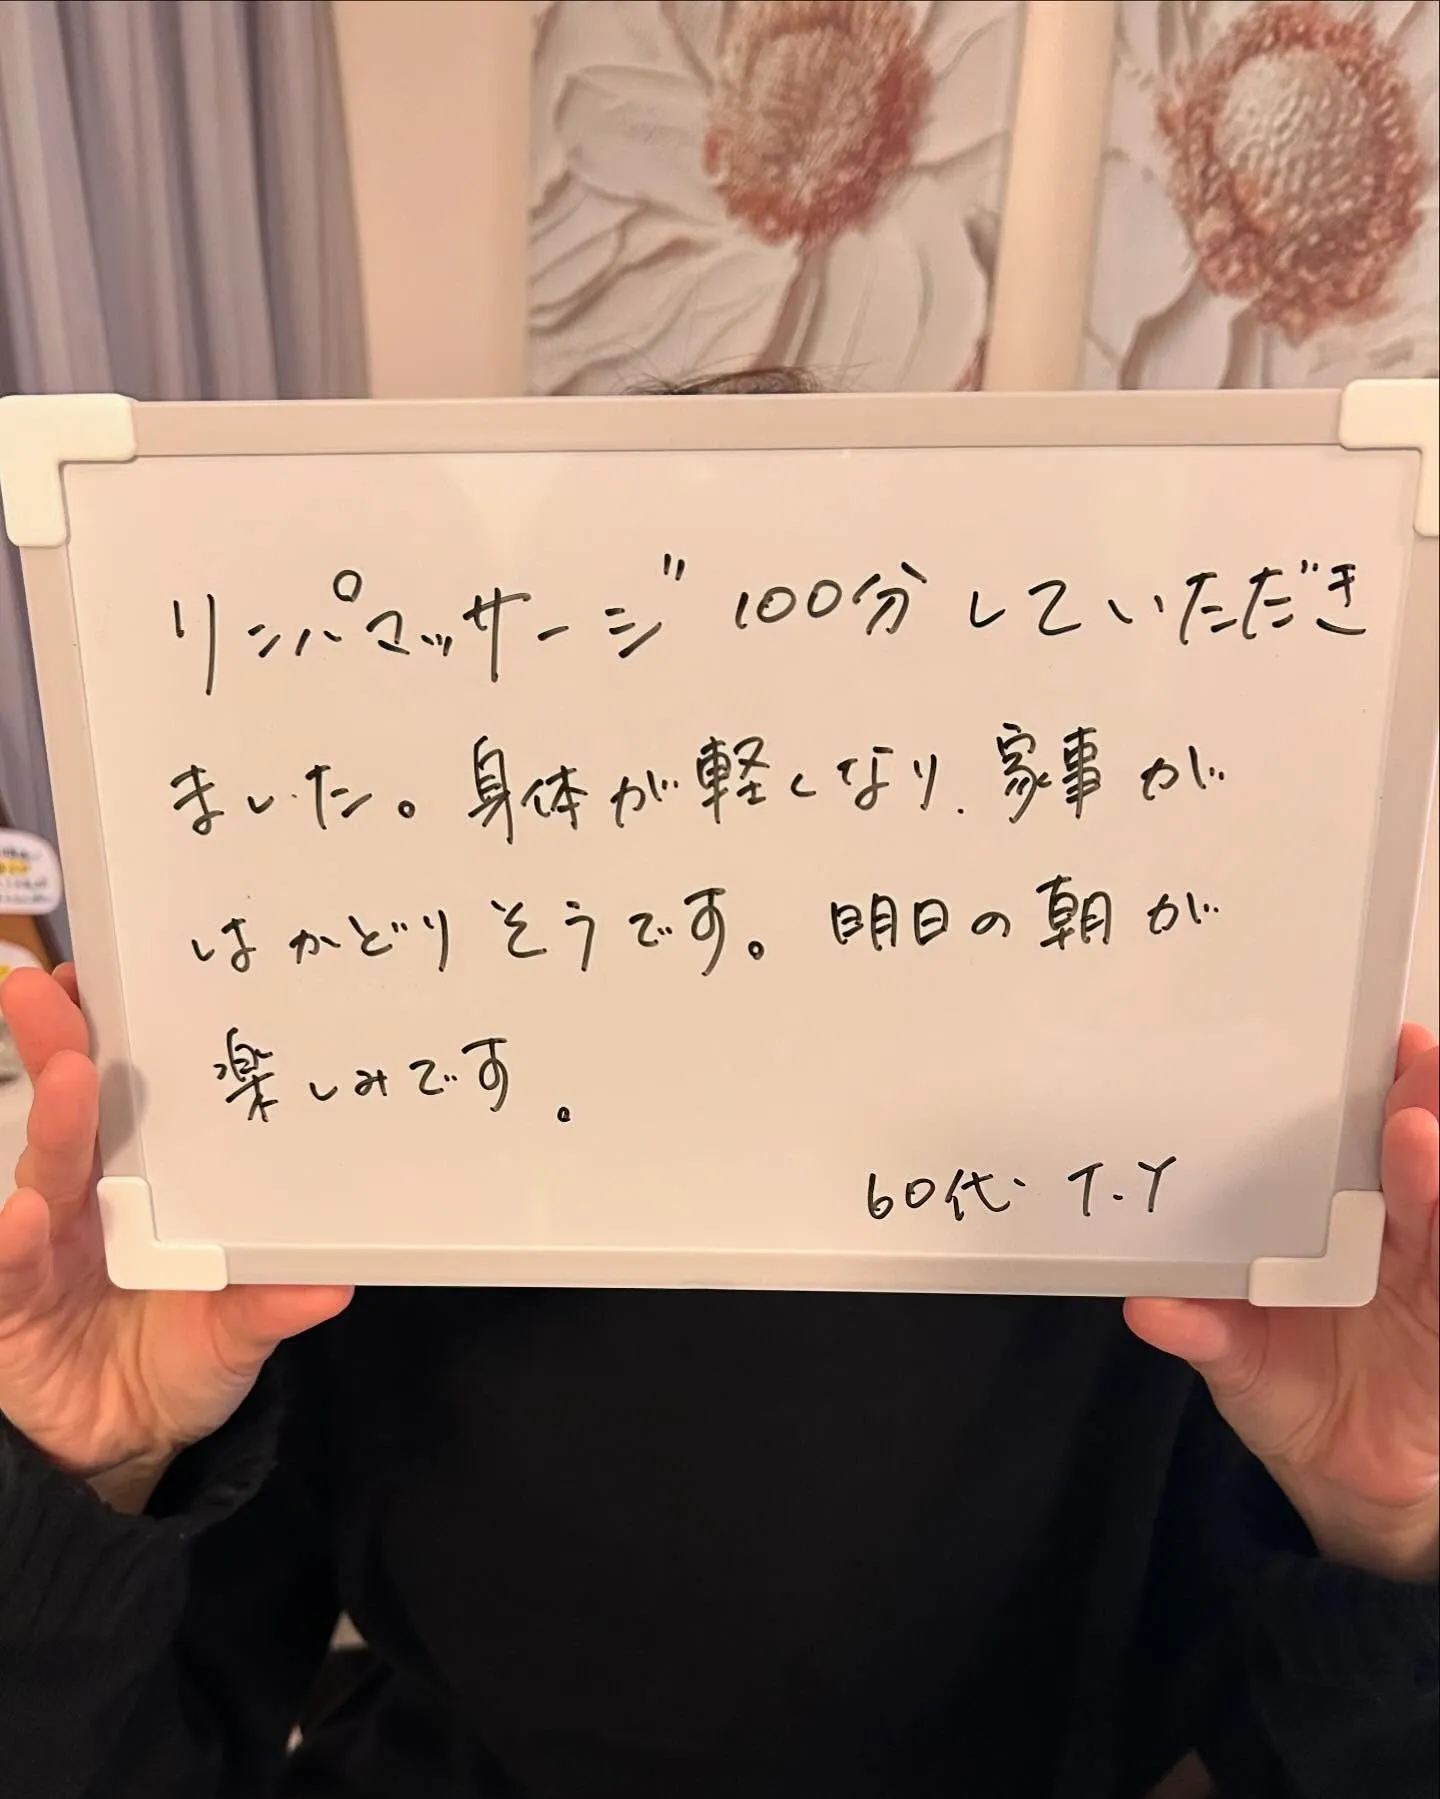 リンパマッサージ 100分していただき
ました。身体が軽くなり、家事が
はかどりそうです。明日の朝が
楽しみです。
60代 T.Y